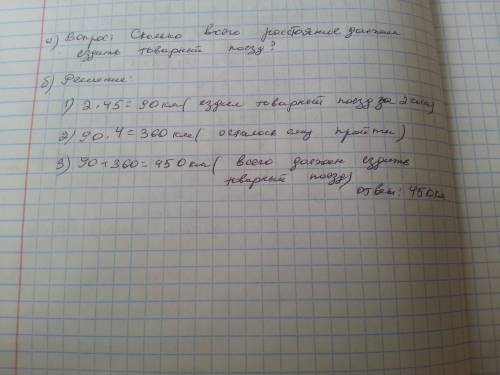 а) Вопрос: Сколько всего расстояние должен
ездить товарный поезд?
б) Решение:
1) 2·45=90км( ездил товарный поезд за 2 часа)
2) 90·4=360км( осталось ему пройти)
3) 90+360=450км( всего должен ездить
товарный поезд)
ответ: 450км